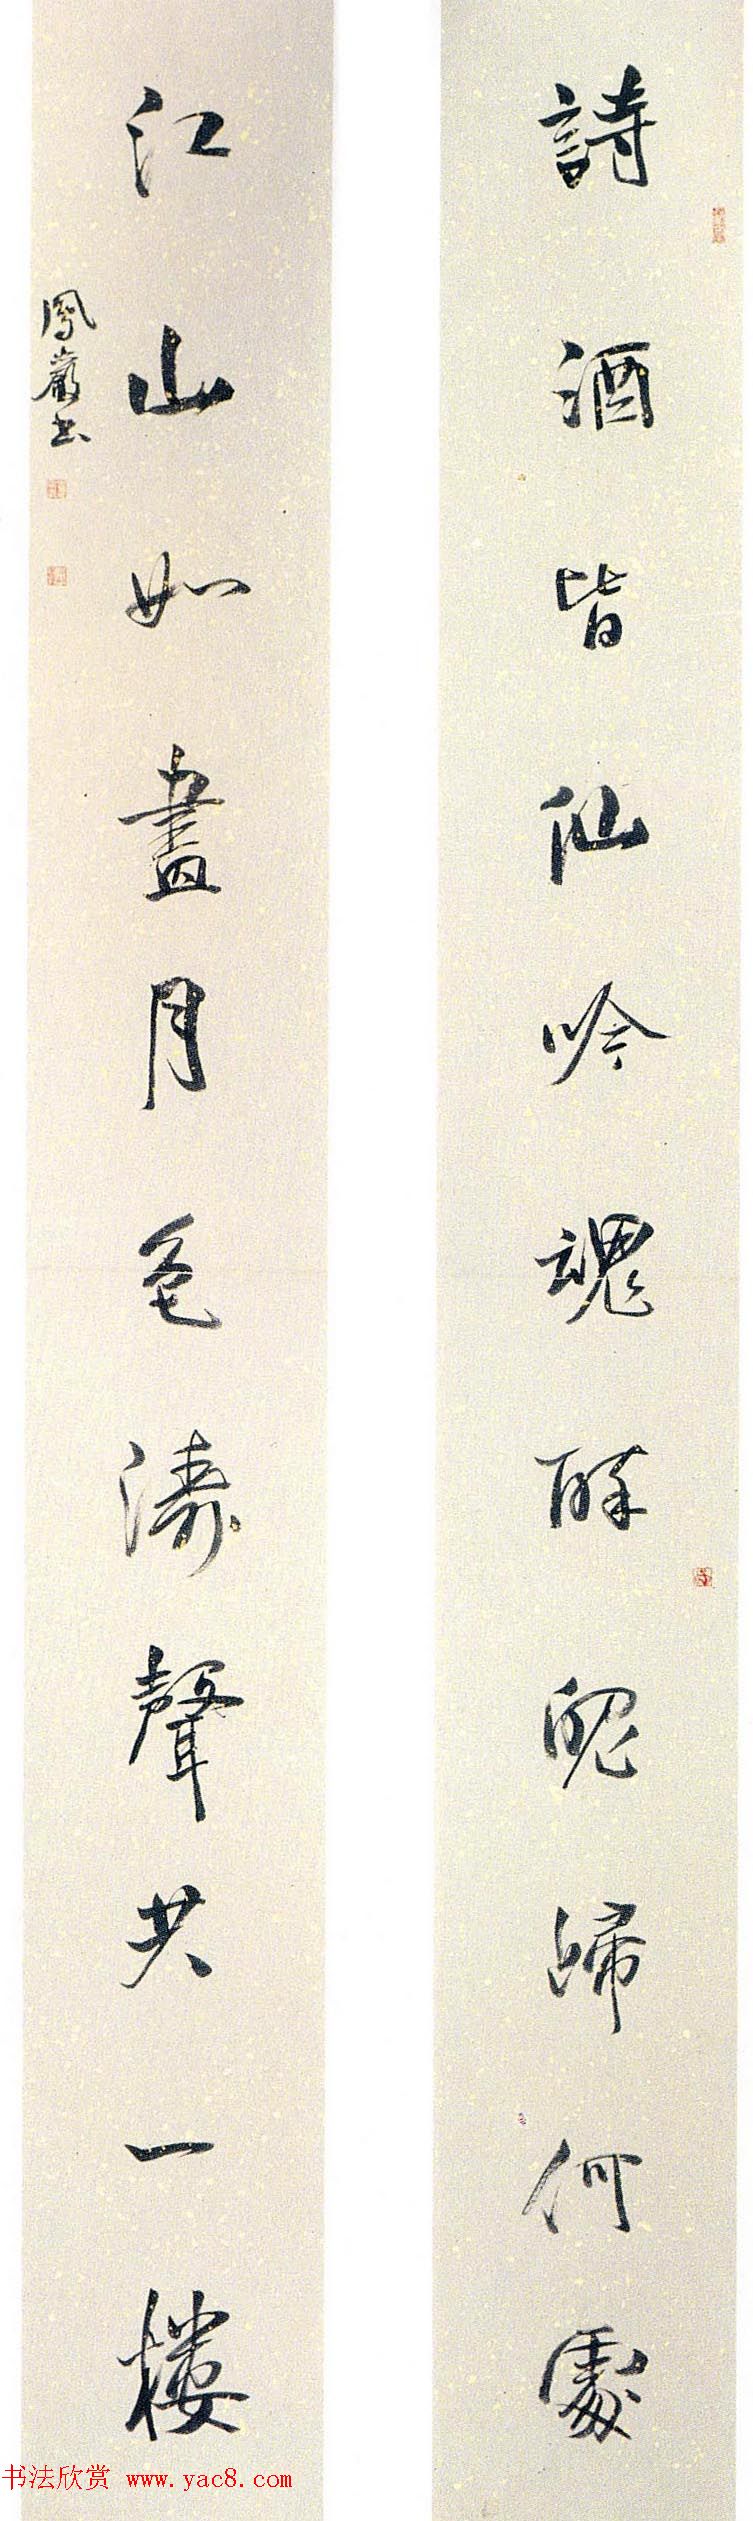 詩酒皆仙吟魂醉魄歸何處
江山如畫月色濤聲共一樓
鳳巖書
书法欣赏 www.yac8.com